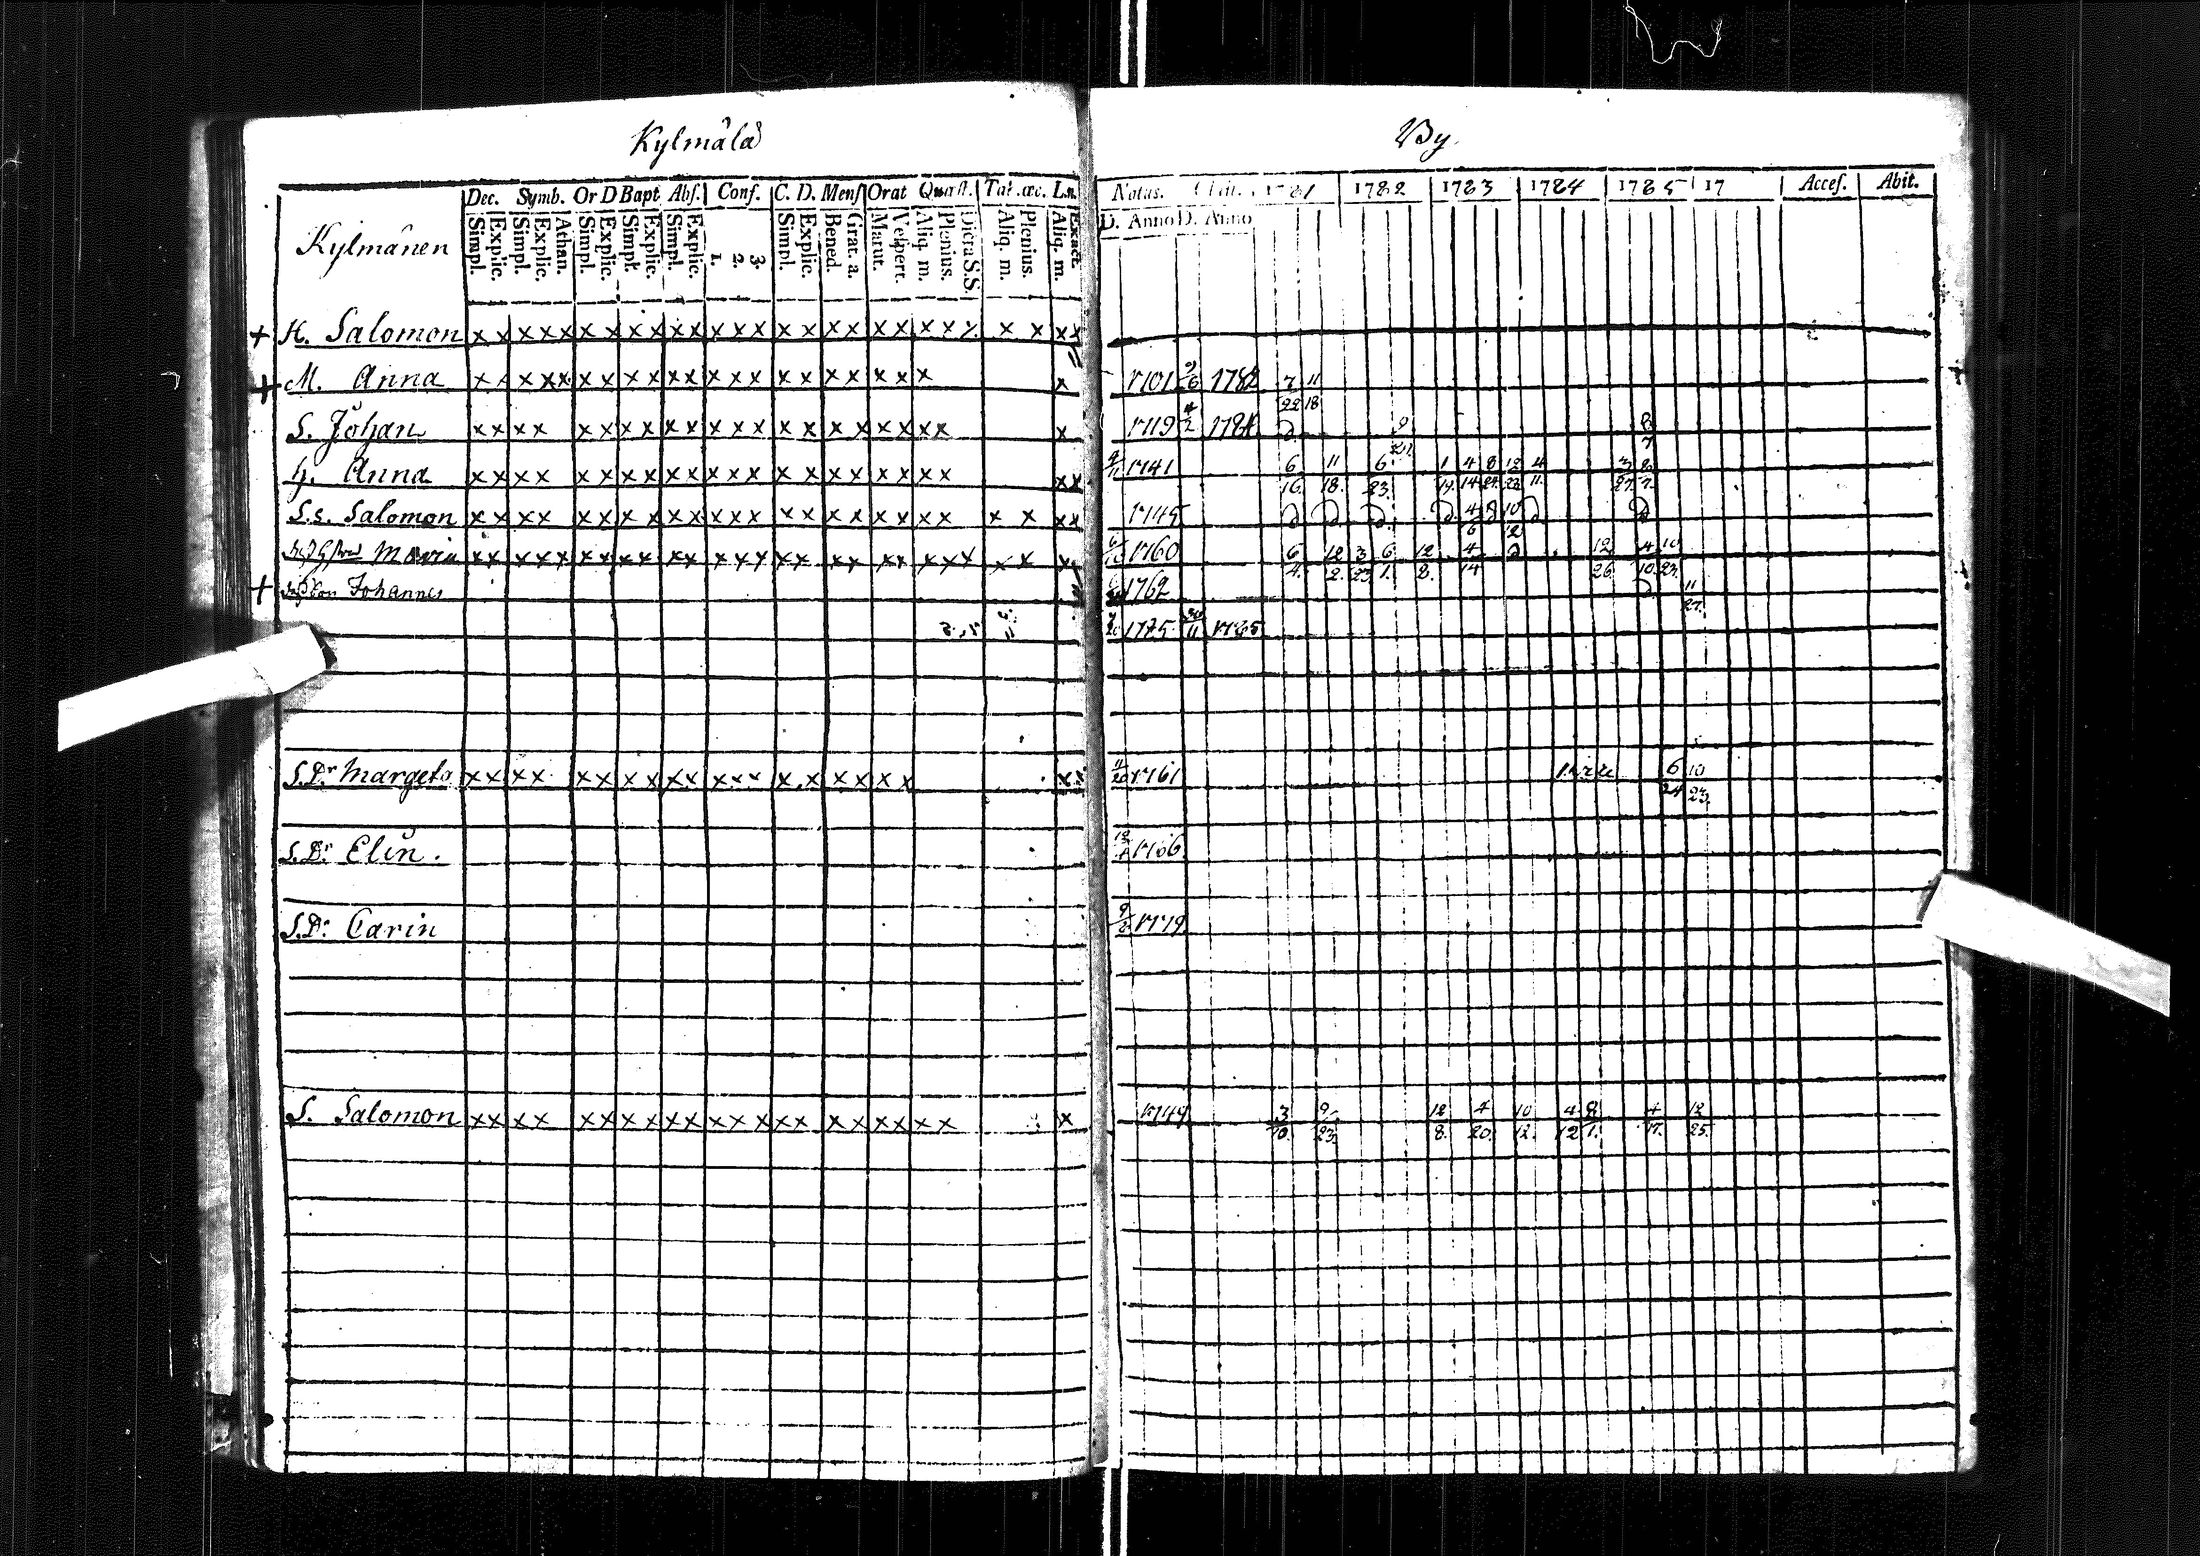 Kylmälä By.
Dec. Symb. Or D Bapt Abs. Conf. C. D. Mens Orat Quæst. Tab. œc. L.n. Natus. 1781 1782 1783 1784 1785 17 Acces. Abit.
Kylmänen Simpl. Explic. Simpl. Explic. Athan. Simpl. Explic. Simpl. Explic. Simpl. Explic. 1. 2. 3. Simpl. Explic. Bened. Grat. a. Matut. Vespert. Aliq. m. Plenius. Dicta S.S. Aliq. m. Plenius. Aliq. m. Exact. D. Anno D. Anno
+ H. Salomon x x x x x x x x x x x x x x x x x x x x x x x x x x x
+ M. Anna x x x x x x x x x x x x x x x x x x x x x 1701 9/6 1782 7/22 11/18
S. Johan x x x x x x x x x x x x x x x x x x x x x x 1719 4/2 1784 9/21 8/7
H. Anna x x x x x x x x x x x x x x x x x x x x x x x 1741 6/16. 11/18. 6/23. 1/14. 4/14 12/23 4/11.
S.s. Salomon x x x x x x x x x x x x x x x x x x x x x x x x x 1745 4/6 10/12
Maria x x x x x x x x x x x x x x x x x x x x x x x x x x 1760 6/4. 12/2. 3/23 6/1. 12/8. 4/14 12/26 4/10. 10/23.
+ Johannes 1762 11/27.
1785 30/11 1785
S.Dr Margeta x x x x x x x x x x x x x x x x x x x x x 11/20 1761 6/24 10/23.
S.Dr Elin. 1766
S.Dr Carin 9/2 1779
S. Salomon x x x x x x x x x x x x x x x x x x x x x x 1749 3/10. 9/23. 12/8. 4/20. 10/12. 4/12 8/1. 4/17. 12/25.